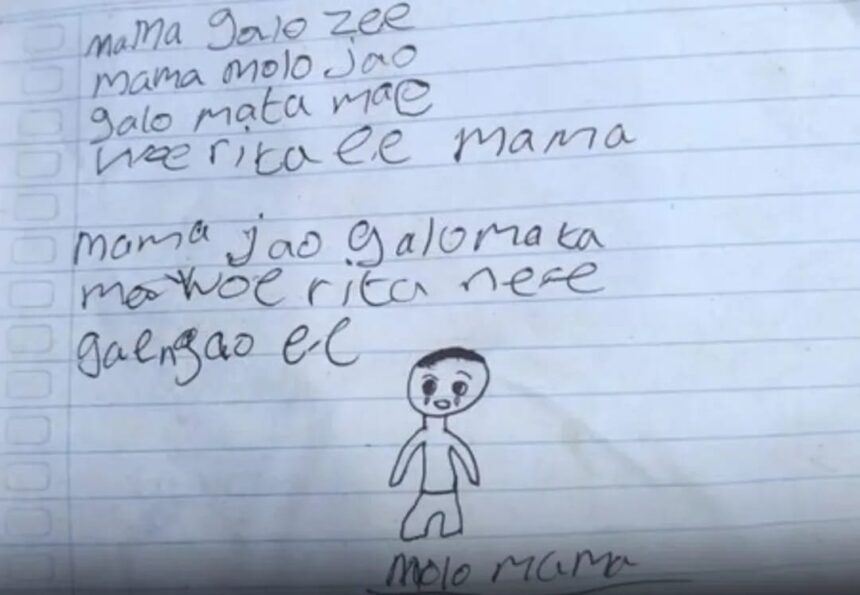 mama galo zee
mama molo jao
galo mata mae
woe rita ee mama
mama jao galo mata
mae woe rita nee
gaengao ee
molo mama